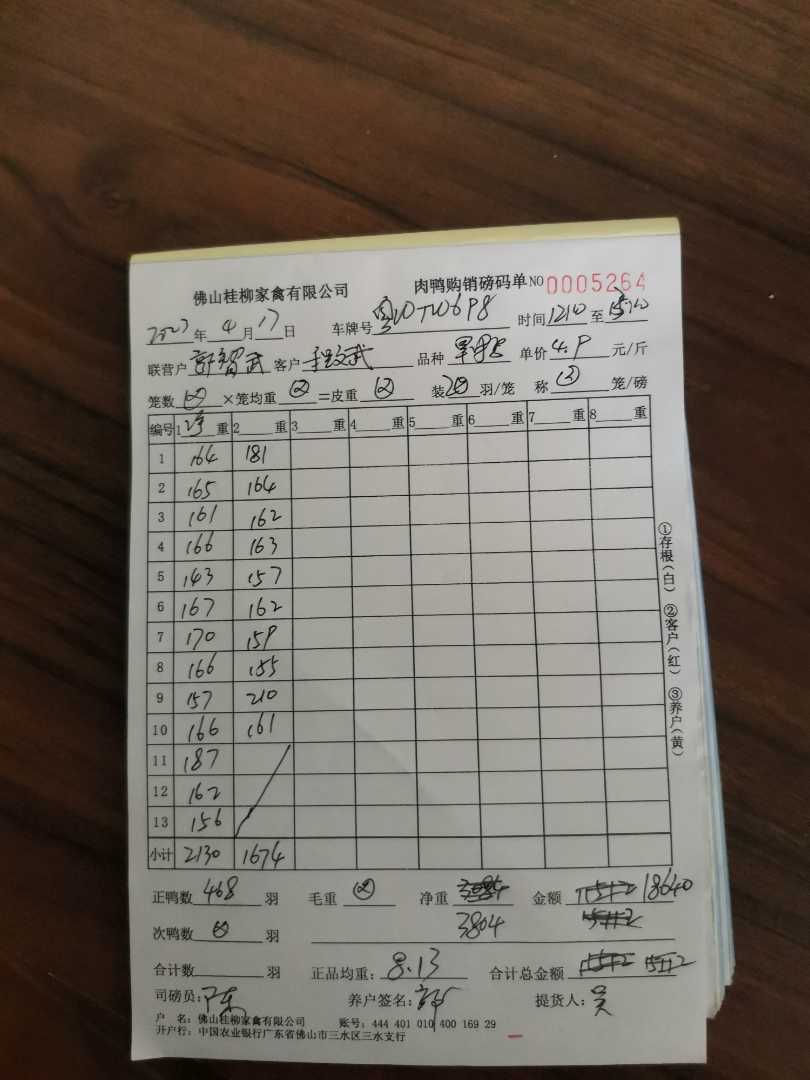 佛山桂柳家禽有限公司 肉鸭购销磅码单 NO 0005264
年 4 月 17 日 车牌号 时间 1210 至
联营户 客户 品种 单价 4.9 元/斤
笼数 ×笼均重 =皮重 装 羽/笼 称 笼/磅
编号 1 重 2 重 3 重 4 重 5 重 6 重 7 重 8 重
1 164 181
2 165 164
3 161 162
4 166 163
5 143 157
6 167 162
7 170 159
8 166 155
9 157 210
10 166 161
11 187
12 162
13 156
小计 2130 1674
正鸭数 468 羽 毛重 净重 金额 18640
次鸭数 羽 3804
合计数 羽 正品均重: 8.13 合计总金额
司磅员: 陈 养户签名: 提货人: 吴
户 名: 佛山桂柳家禽有限公司 账号: 444 401 010 400 169 29
开户行: 中国农业银行广东省佛山市三水区三水支行
①存根(白) ②客户(红) ③养户(黄)